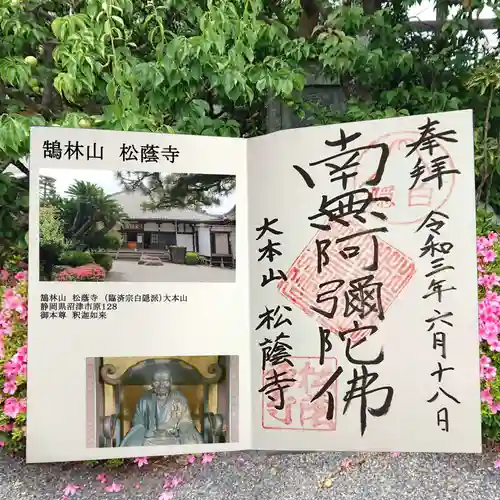 鵠林山 松蔭寺
鵠林山 松蔭寺 (臨済宗白隠派)大本山
静岡県沼津市原128
御本尊 釈迦如来
奉拝
令和三年六月十八日
南無阿彌陀佛
大本山 松蔭寺